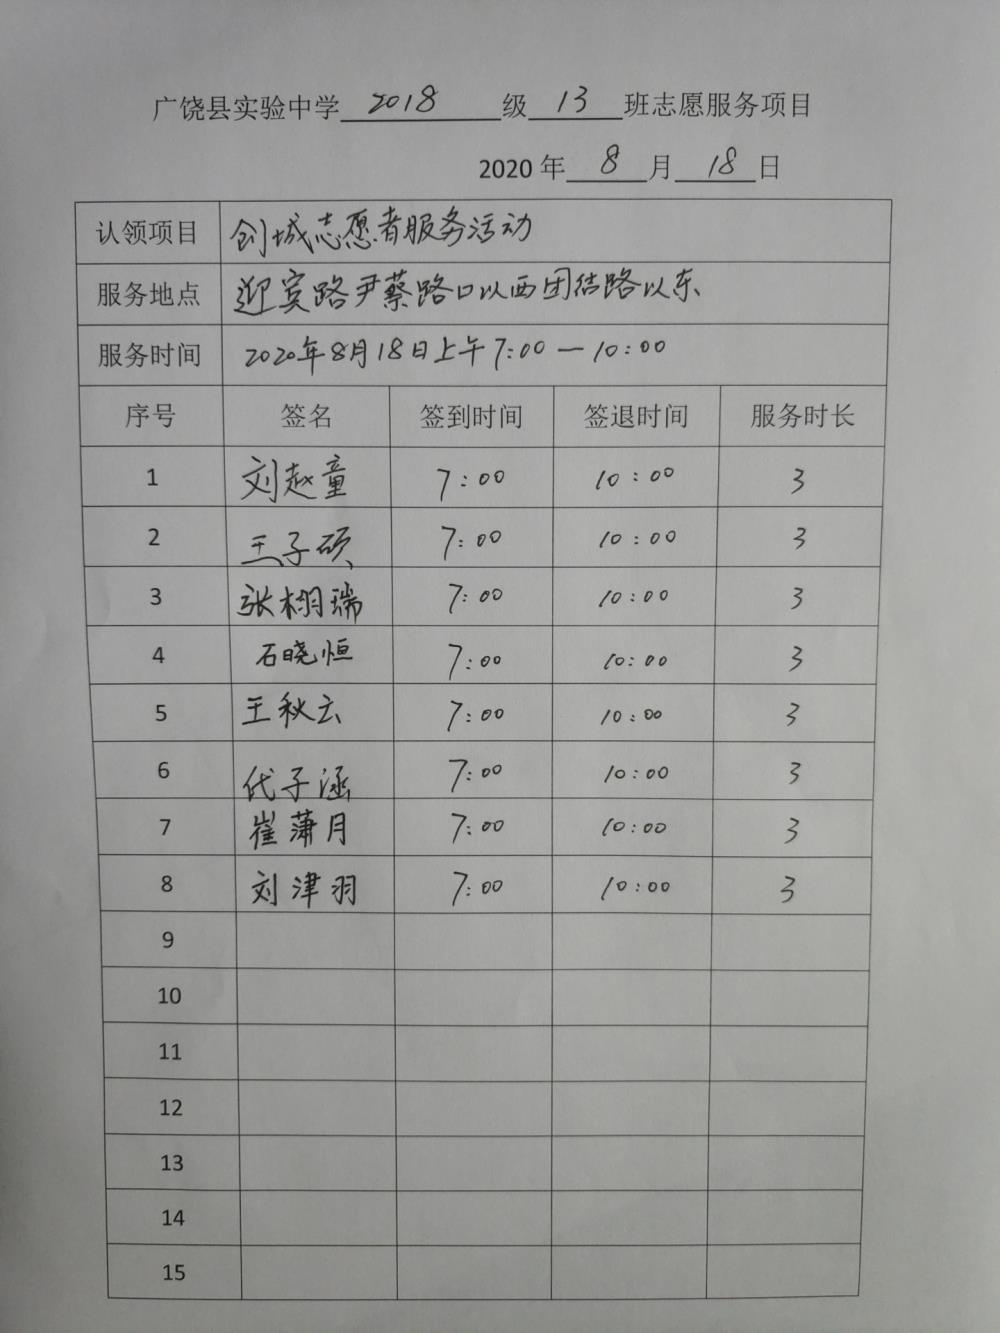 广饶县实验中学 2018 级 13 班志愿服务项目
2020 年 8 月 18 日
认领项目 创城志愿者服务活动
服务地点 迎宾路尹蔡路口以西团结路以东
服务时间 2020年8月18日上午7:00—10:00
序号 签名 签到时间 签退时间 服务时长
1 刘赵童 7:00 10:00 3
2 王子硕 7:00 10:00 3
3 张栩瑞 7:00 10:00 3
4 石晓恒 7:00 10:00 3
5 王秋云 7:00 10:00 3
6 代子涵 7:00 10:00 3
7 崔蒲月 7:00 10:00 3
8 刘津羽 7:00 10:00 3
9
10
11
12
13
14
15